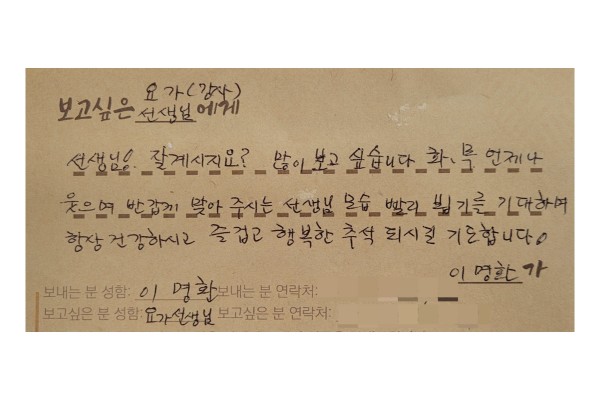 요가(강사)
보고싶은 선생님에게
선생님. 잘계시지요? 많이 보고 싶습니다 화, 목 언제나
웃으며 반갑게 맞아 주시는 선생님 모습 빨리 뵙기를 기대하며
항상 건강하시고 즐겁고 행복한 추석 되시길 기도합니다.
이명환가
보내는 분 성함: 이 명환 보내는 분 연락처:
보고싶은 분 성함: 요가선생님 보고싶은 분 연락처: